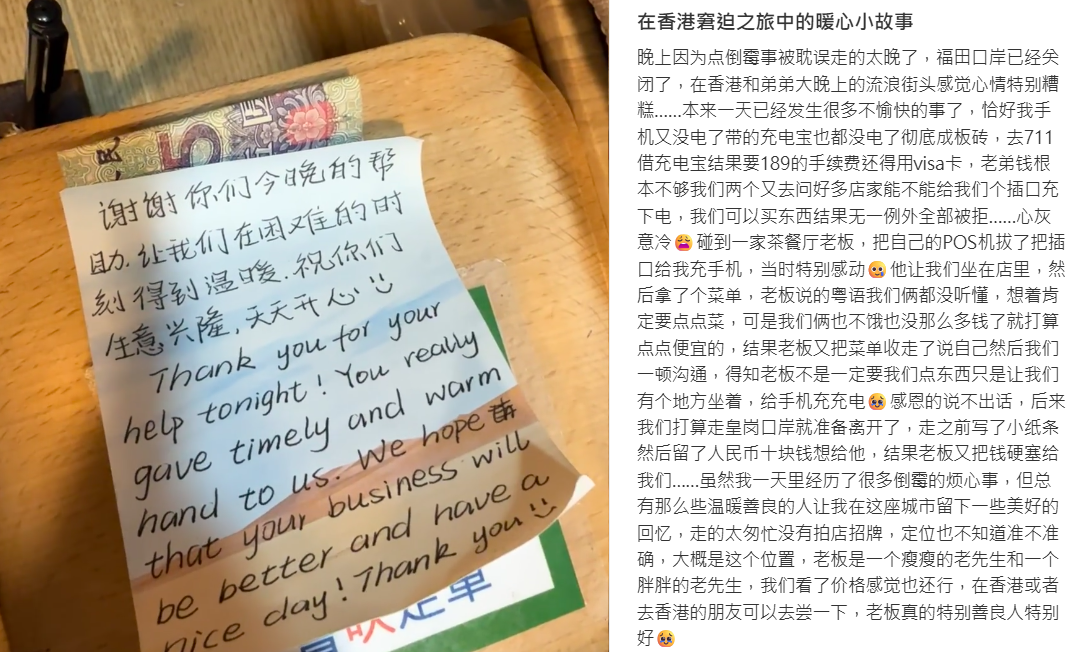 谢谢你们今晚的帮
助.让我们在困难的时
刻得到温暖.祝你们
生意兴隆,天天开心
Thank you for your
help tonight! You really
gave timely and warm
hand to us. We hope
that your business will
be better and have a
nice day! Thank you
5
民
单
在香港窘迫之旅中的暖心小故事
晚上因为点倒霉事被耽误走的太晚了，福田口岸已经关
闭了，在香港和弟弟大晚上的流浪街头感觉心情特别糟
糕......本来一天已经发生很多不愉快的事了，恰好我手
机又没电了带的充电宝也都没电了彻底成板砖，去711
借充电宝结果要189的手续费还得用visa卡，老弟钱根
本不够我们两个又去问好多店家能不能给我们个插口充
下电，我们可以买东西结果无一例外全部被拒......心灰
意冷😩 碰到一家茶餐厅老板，把自己的POS机拔了把插
口给我充手机，当时特别感动🥹 他让我们坐在店里，然
后拿了个菜单，老板说的粤语我们俩都没听懂，想着肯
定要点点菜，可是我们俩也不饿也没那么多钱了就打算
点点便宜的，结果老板又把菜单收走了说自己然后我们
一顿沟通，得知老板不是一定要我们点东西只是让我们
有个地方坐着，给手机充充电😭 感恩的说不出话，后来
我们打算走皇岗口岸就准备离开了，走之前写了小纸条
然后留了人民币十块钱想给他，结果老板又把钱硬塞给
我们......虽然我一天里经历了很多倒霉的烦心事，但总
有那么些温暖善良的人让我在这座城市留下一些美好的
回忆，走的太匆忙没有拍店招牌，定位也不知道准不准
确，大概是这个位置，老板是一个瘦瘦的老先生和一个
胖胖的老先生，我们看了价格感觉也还行，在香港或者
去香港的朋友可以去尝一下，老板真的特别善良人特别
好😭